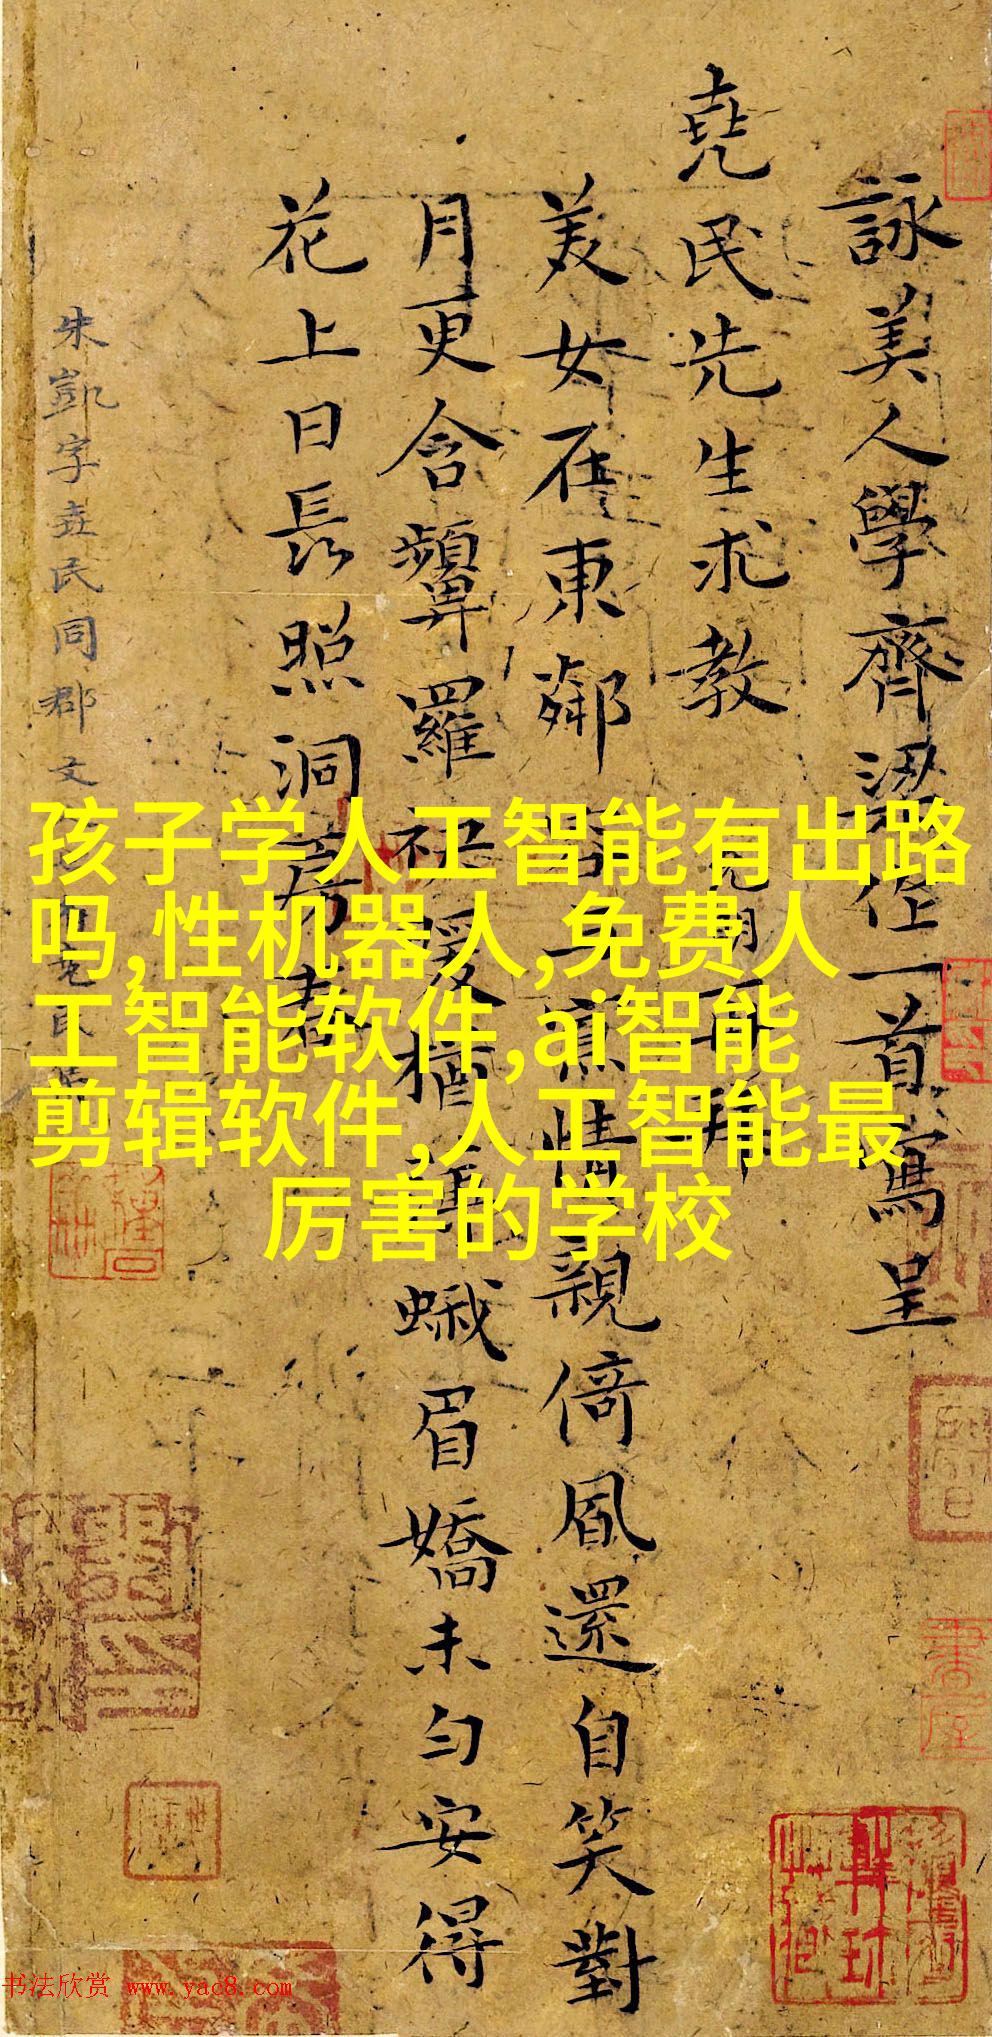 詠美人學齊梁作一首寫呈
堯民先生求教
美女在東鄰
情親倚風還自笑對
月更含顰羅
蛾眉嬌未勻安得
花上日長照洞房春
朱凱字堯民同郡文
孩子学人工智能有出路
吗,性机器人,免费人
工智能软件,ai智能
剪辑软件,人工智能最
厉害的学校
书法欣赏 www.yac8.com